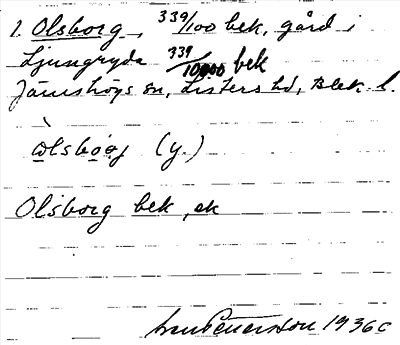 1. Olsborg, 339/100 bek, gård i
Ljungryda 339/10000 bek
Jämshögs sn, Listers hd, Blek. l.
(y.)
Olsborg bek, ek
1936 c